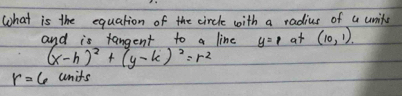 What is the equation of the circle with a radius of 6 units
and is tangent to a line y=1 at (10, 1).
(x-h)² + (y-k)² = r²
r = 6 units